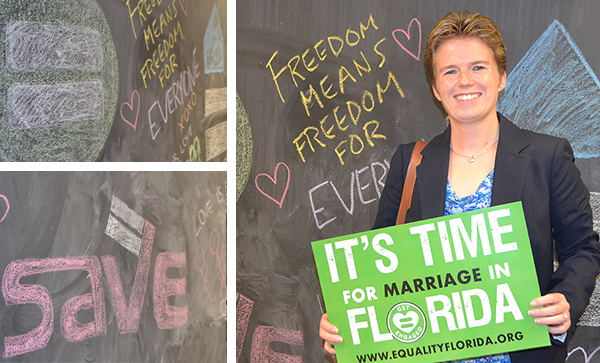 FREEDOM
MEANS
FREEDOM
FOR
EVERYONE
XOXO
IS LOVE
SAVE
LOVE
FREEDOM
MEANS
FREEDOM
FOR
EVERY
IT'S TIME
FOR MARRIAGE IN
FLORIDA
GET
ENGAGED
WWW.EQUALITYFLORIDA.ORG